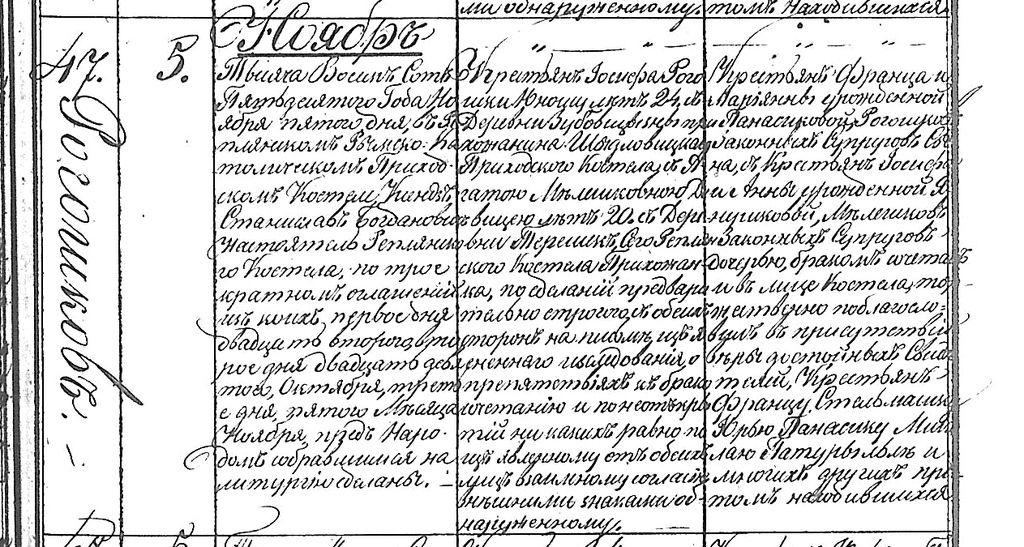 ми обнаруженному.
томъ находившихся
47.
Рогошковъ.
5.
Ноябръ
Тысяча Восимъ Сотъ
Пятьдесятого Года Но
ября пятого дня, въ Ре
плянскомъ Римско-Ка
толическомъ Приход
скомъ Костелѣ, Ксендзъ
Станиславъ Богданович
Настоятель Реплянско
го Костела, по трое
кратномъ оглашеніи
изъ коихъ первое дня
двадцать второго, вто
рое дня двадцать девя
того, Октября, треть
е дня пятого Мѣсяца
Ноября, предъ Наро-
домъ собравшимся на
литургію сдѣланы. —
Крестьянъ Іосифа Рого
шки Юношу лѣтъ 24, съ
Деревни Зубовщизны при
хожанина Шидловицкаго
Приходского Костела, съ А
гатою Мѣлешковною Д
ѣвицею лѣтъ 20. съ Дере
вни Терешкъ, Сего Реплян
ского Костела Прихожан
ка, по сдѣланіи предвари
тельно строгого, съ обѣихъ
сторонъ на письмѣ изъя
сненнаго изслѣдованія о
препятствіяхъ къ брако
сочетанію и по неоткры
тій ни какихъ равно по
изъявленному отъ обѣихъ
лицъ взаимному согласію
внѣшними знаками об-
наруженному.
Крестьянъ Франца и
Маріянны урожденной
Панасиковой, Рогошков
Законныхъ Супруговъ Сы
на, съ Крестьянъ Іосифа
и Анны урожденной
Мѣлешковъ
Законныхъ Супруговъ
дочерью, бракомъ сочета
и въ лицѣ Костела, тор
жественно поблагосло-
вилъ въ присутствіи
вѣры достойныхъ Свидѣ
телей, Крестьянъ
Францу Стельмашка
Юрью Панасику Миха
лаю и
многихъ другихъ при
томъ находившихся
5